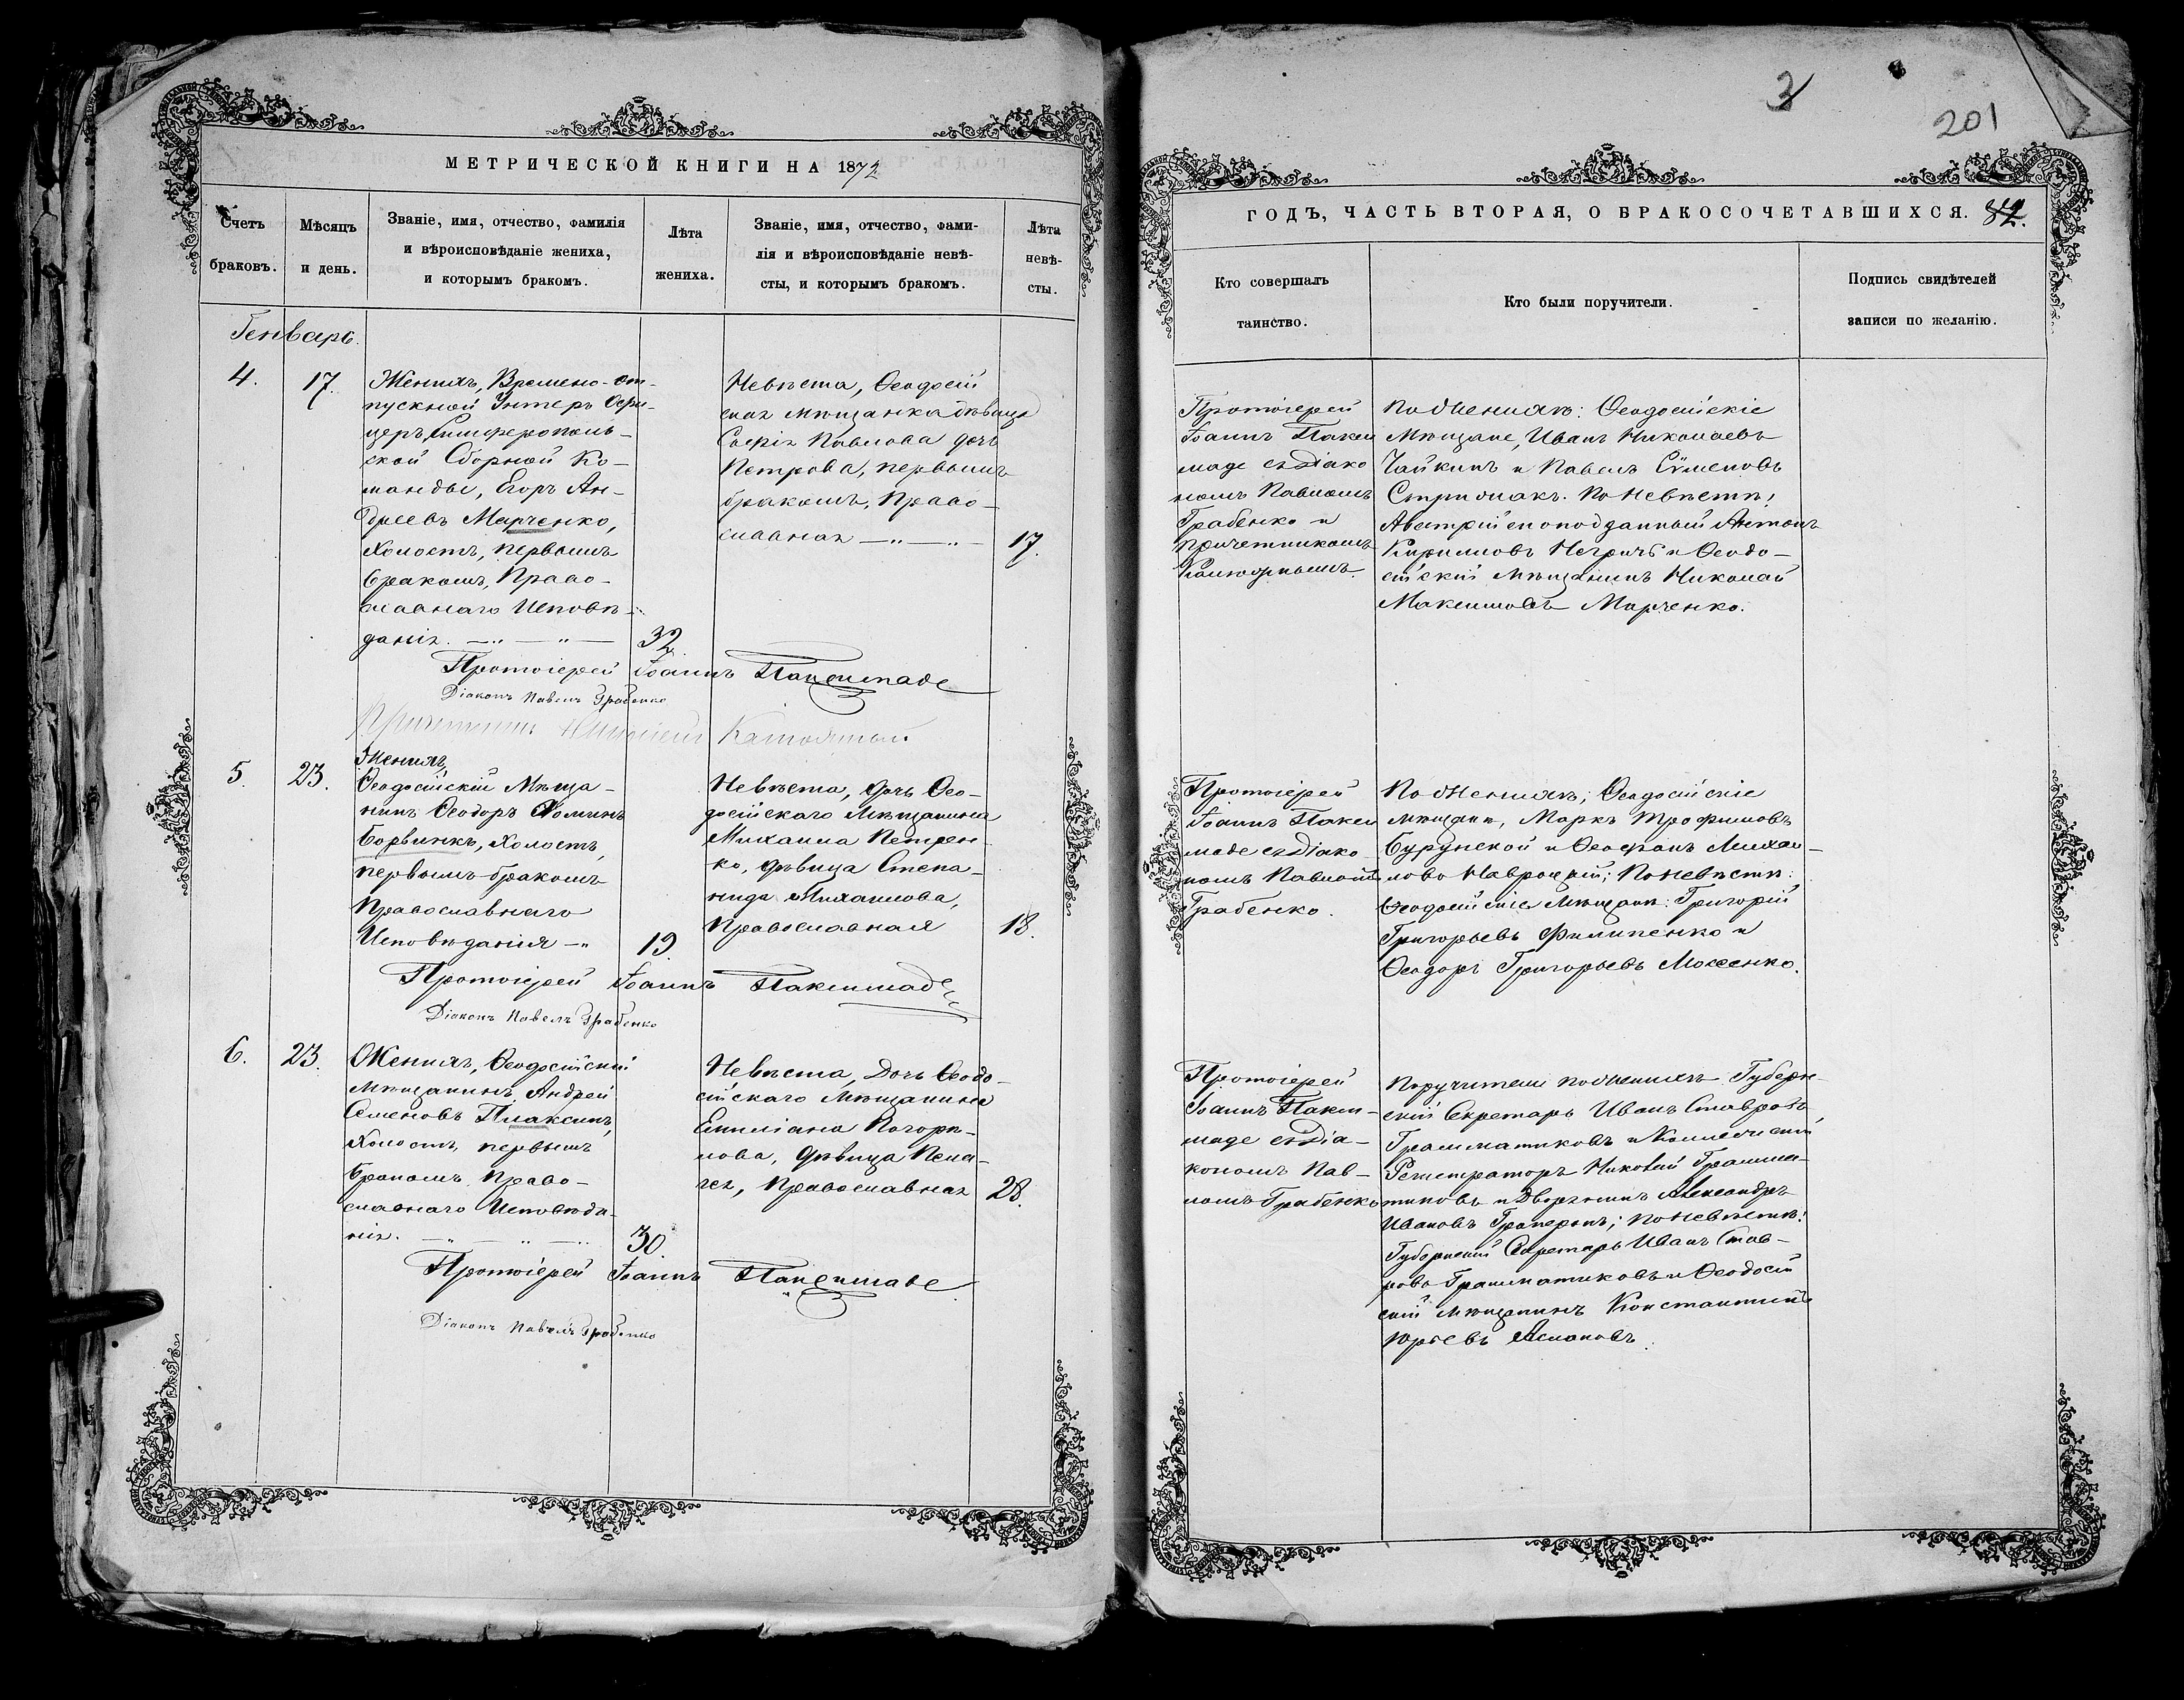 МЕТРИЧЕСКОЙ КНИГИ НА 1872
Счетъ браковъ.
Мѣсяцъ и день.
Званіе, имя, отчество, фамилія
и вѣроисповѣданіе жениха,
и которымъ бракомъ.
Лѣта жениха.
Званіе, имя, отчество, фами-
лія и вѣроисповѣданіе невѣ-
сты, и которымъ бракомъ.
Лѣта невѣ-
сты.
Генварь.
4.
17.
Женихъ, Времено-от-
пускной Унтеръ Офи-
церъ, Симферополь-
ской Сборной Ко-
манды, Егоръ Ан-
дреевъ Марченко,
холостъ, первымъ
бракомъ, Право-
славнаго Исповѣ-
данія.
32
Невѣста, Ѳеодосій
ская мѣщанка дѣвица
Софія Павлова дочь
Петрова, первымъ
бракомъ, Право-
славная
17.
Протоіерей Іоаннъ Паксимаде
Діаконъ Павелъ Грабенко
5.
23.
Женихъ,
Ѳеодосійскій Мѣща-
нинъ Ѳеодоръ Ѳоминъ
Борвинкъ, Холостъ,
первымъ бракомъ
Православнаго
Исповѣданія
19.
Невѣста, дочь Ѳео-
досійскаго Мѣщанина
Михаила Петрен-
ко, дѣвица Степа-
нида Михаилова,
Православная
18.
Протоіерей Іоаннъ Паксимаде
Діаконъ Павелъ Грабенко
6.
23.
Женихъ, Ѳеодосійскій
Мѣщанинъ Андрей
Семеновъ Плаксинъ,
Холостъ, первымъ
бракомъ, Право-
славнаго Исповѣда-
нія.
30.
Невѣста, Дочь Ѳеодо-
сійскаго Мѣщанина
Емиліана Погорѣ-
лова, дѣвица Пела-
гея, Православная
28.
Протоіерей Іоаннъ Паксимаде
Діаконъ Павелъ Грабенко
3
201
ГОДЪ, ЧАСТЬ ВТОРАЯ, О БРАКОСОЧЕТАВШИХСЯ.
Кто совершалъ
таинство.
Кто были поручители.
Подпись свидѣтелей
записи по желанію.
Протоіерей
Іоаннъ Пакси
маде съ Діако
номъ Павломъ
Грабенко и
причетникомъ
По женихѣ: Ѳеодосійскіе
Мѣщане, Иванъ Николаевъ
Чайкинъ и Павелъ Сѵменовъ
Стрижакъ. По невѣстѣ:
Австрійскоподданный Антонъ
Кириловъ Негричъ и Ѳеодо-
сійскій Мѣщанинъ Николай
Максимовъ Марченко.
Протоіерей
Іоаннъ Пакси
маде съ Діако
номъ Павломъ
Грабенко.
По женихѣ; Ѳеодосійскіе
мѣщане, Маркъ Трофимовъ
Бурунской и Ѳеофанъ Михаи-
лова Навроцкій; По невѣстѣ:
Ѳеодосійскіе Мѣщане: Григорій
Григорьевъ Филипенко и
Ѳеодоръ Григорьевъ Мосенко.
Протоіерей
Іоаннъ Пакси-
маде съ Діа-
кономъ Пав-
ломъ Грабенко
Поручители по женихѣ Губерн-
скій Секретарь Иванъ Ставровъ
Грамматиковъ и Коллежскій
Регистраторъ Николай Грамма-
тиковъ и Дворянинъ Александръ
Ивановъ Граперонъ; по невѣстѣ:
Губернскій Секретарь Иванъ Став-
рова Грамматиковъ и Ѳеодосій
скій мѣщанинъ Константинъ
Юрьевъ Аслановъ.